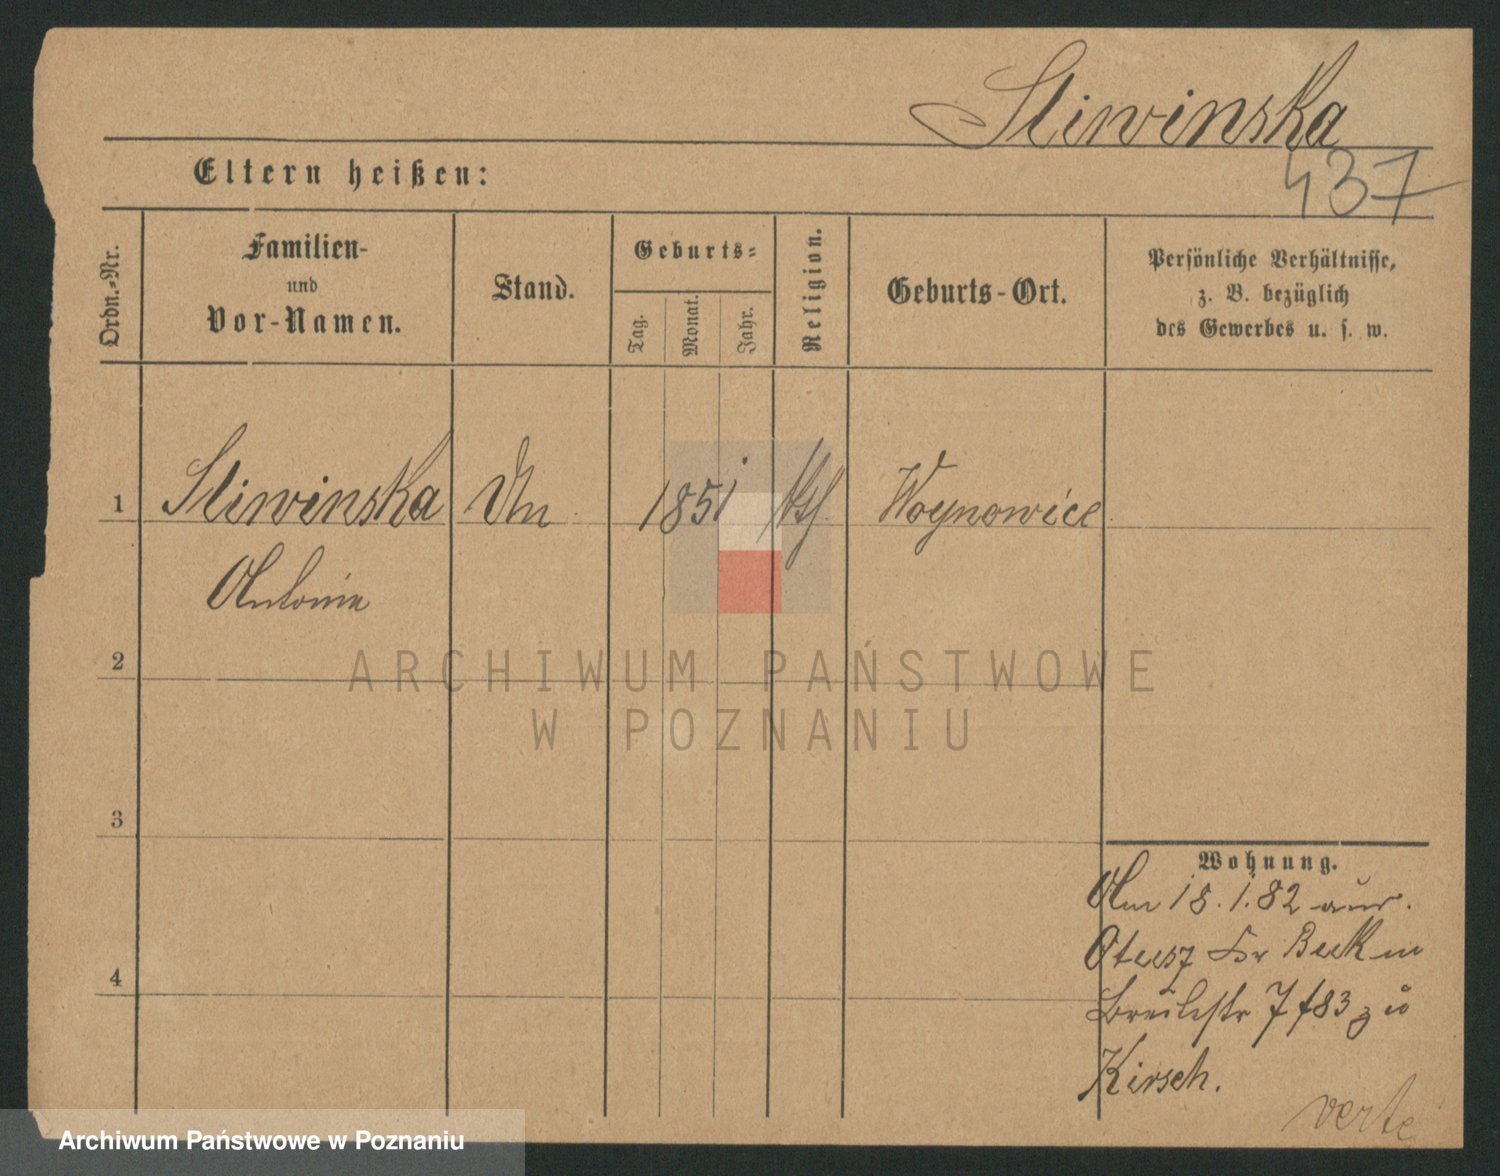 Sliwinska
437
Eltern heißen:
Ordn.-Nr.
Familien-
und
Vor-Namen.
Stand.
Geburts-
Tag.
Monat.
Jahr.
Religion.
Geburts-Ort.
Persönliche Verhältnisse,
z. B. bezüglich
des Gewerbes u. s. w.
1 Sliwinska 1851 Woynowice
Antonie
2
3
4
ARCHIWUM PAŃSTWOWE
W POZNANIU
Wohnung.
Am 18.1.82 aus
Otusz Beck in
Breitestr 7 83 zu
Kirsch.
verte
Archiwum Państwowe w Poznaniu